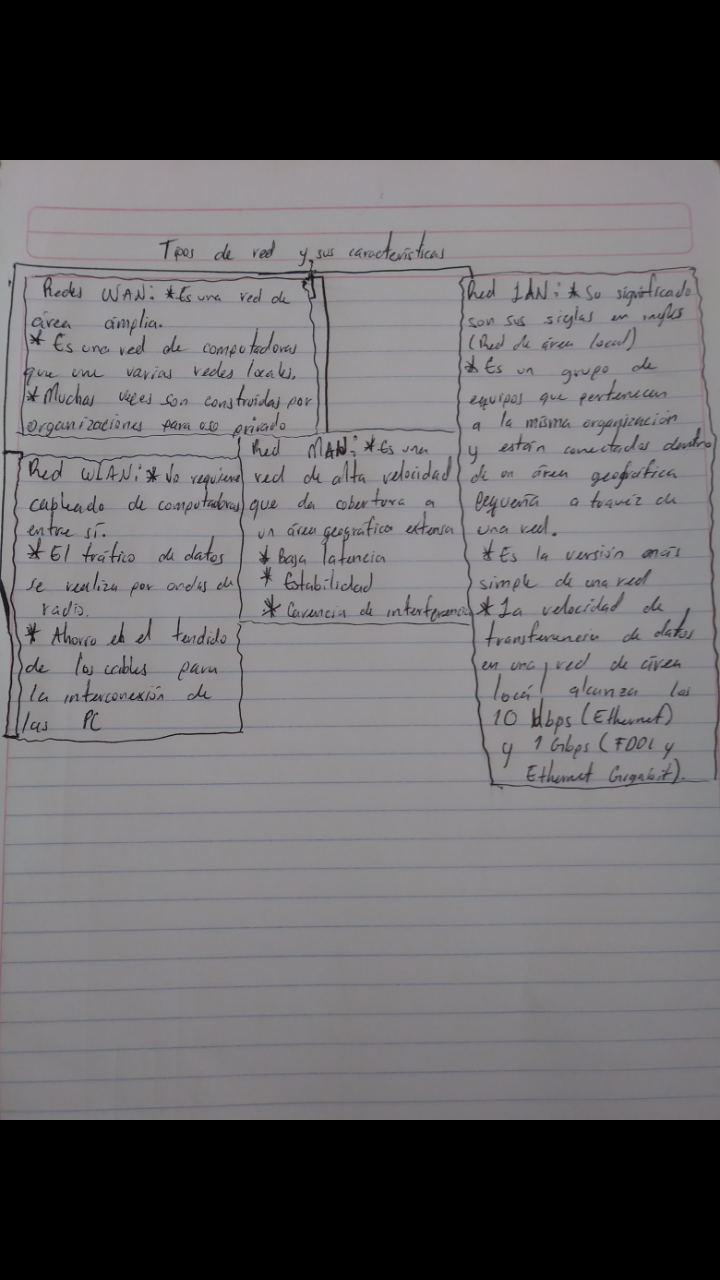 Tipos de red y sus características
Redes WAN: *Es una red de
área ámplia.
* Es una red de computadoras
que une varias redes locales.
* Muchas veces son construidas por
organizaciones para uso privado
Red WLAN: * No requiere
cableado de computadoras
entre sí.
* El tráfico de datos
se realiza por ondas de
radio.
* Ahorro en el tendido
de los cables para
la interconexión de
las PC
Red MAN: * Es una
red de alta velocidad
que da cobertura a
un área geográfica extensa
* Baja latencia
* Estabilidad
* Carencia de interferencia
Red LAN: * Su significado
son sus siglas en inglés
(Red de área local)
* Es un grupo de
equipos que pertenecen
a la misma organización
y están conectados dentro
de un área geográfica
pequeña a travéz de
una red.
* Es la versión más
simple de una red
* La velocidad de
transferencia de datos
en una red de área
local alcanza los
10 Mbps (Ethernet)
y 1 Gbps (FDDI y
Ethernet Gigabit).